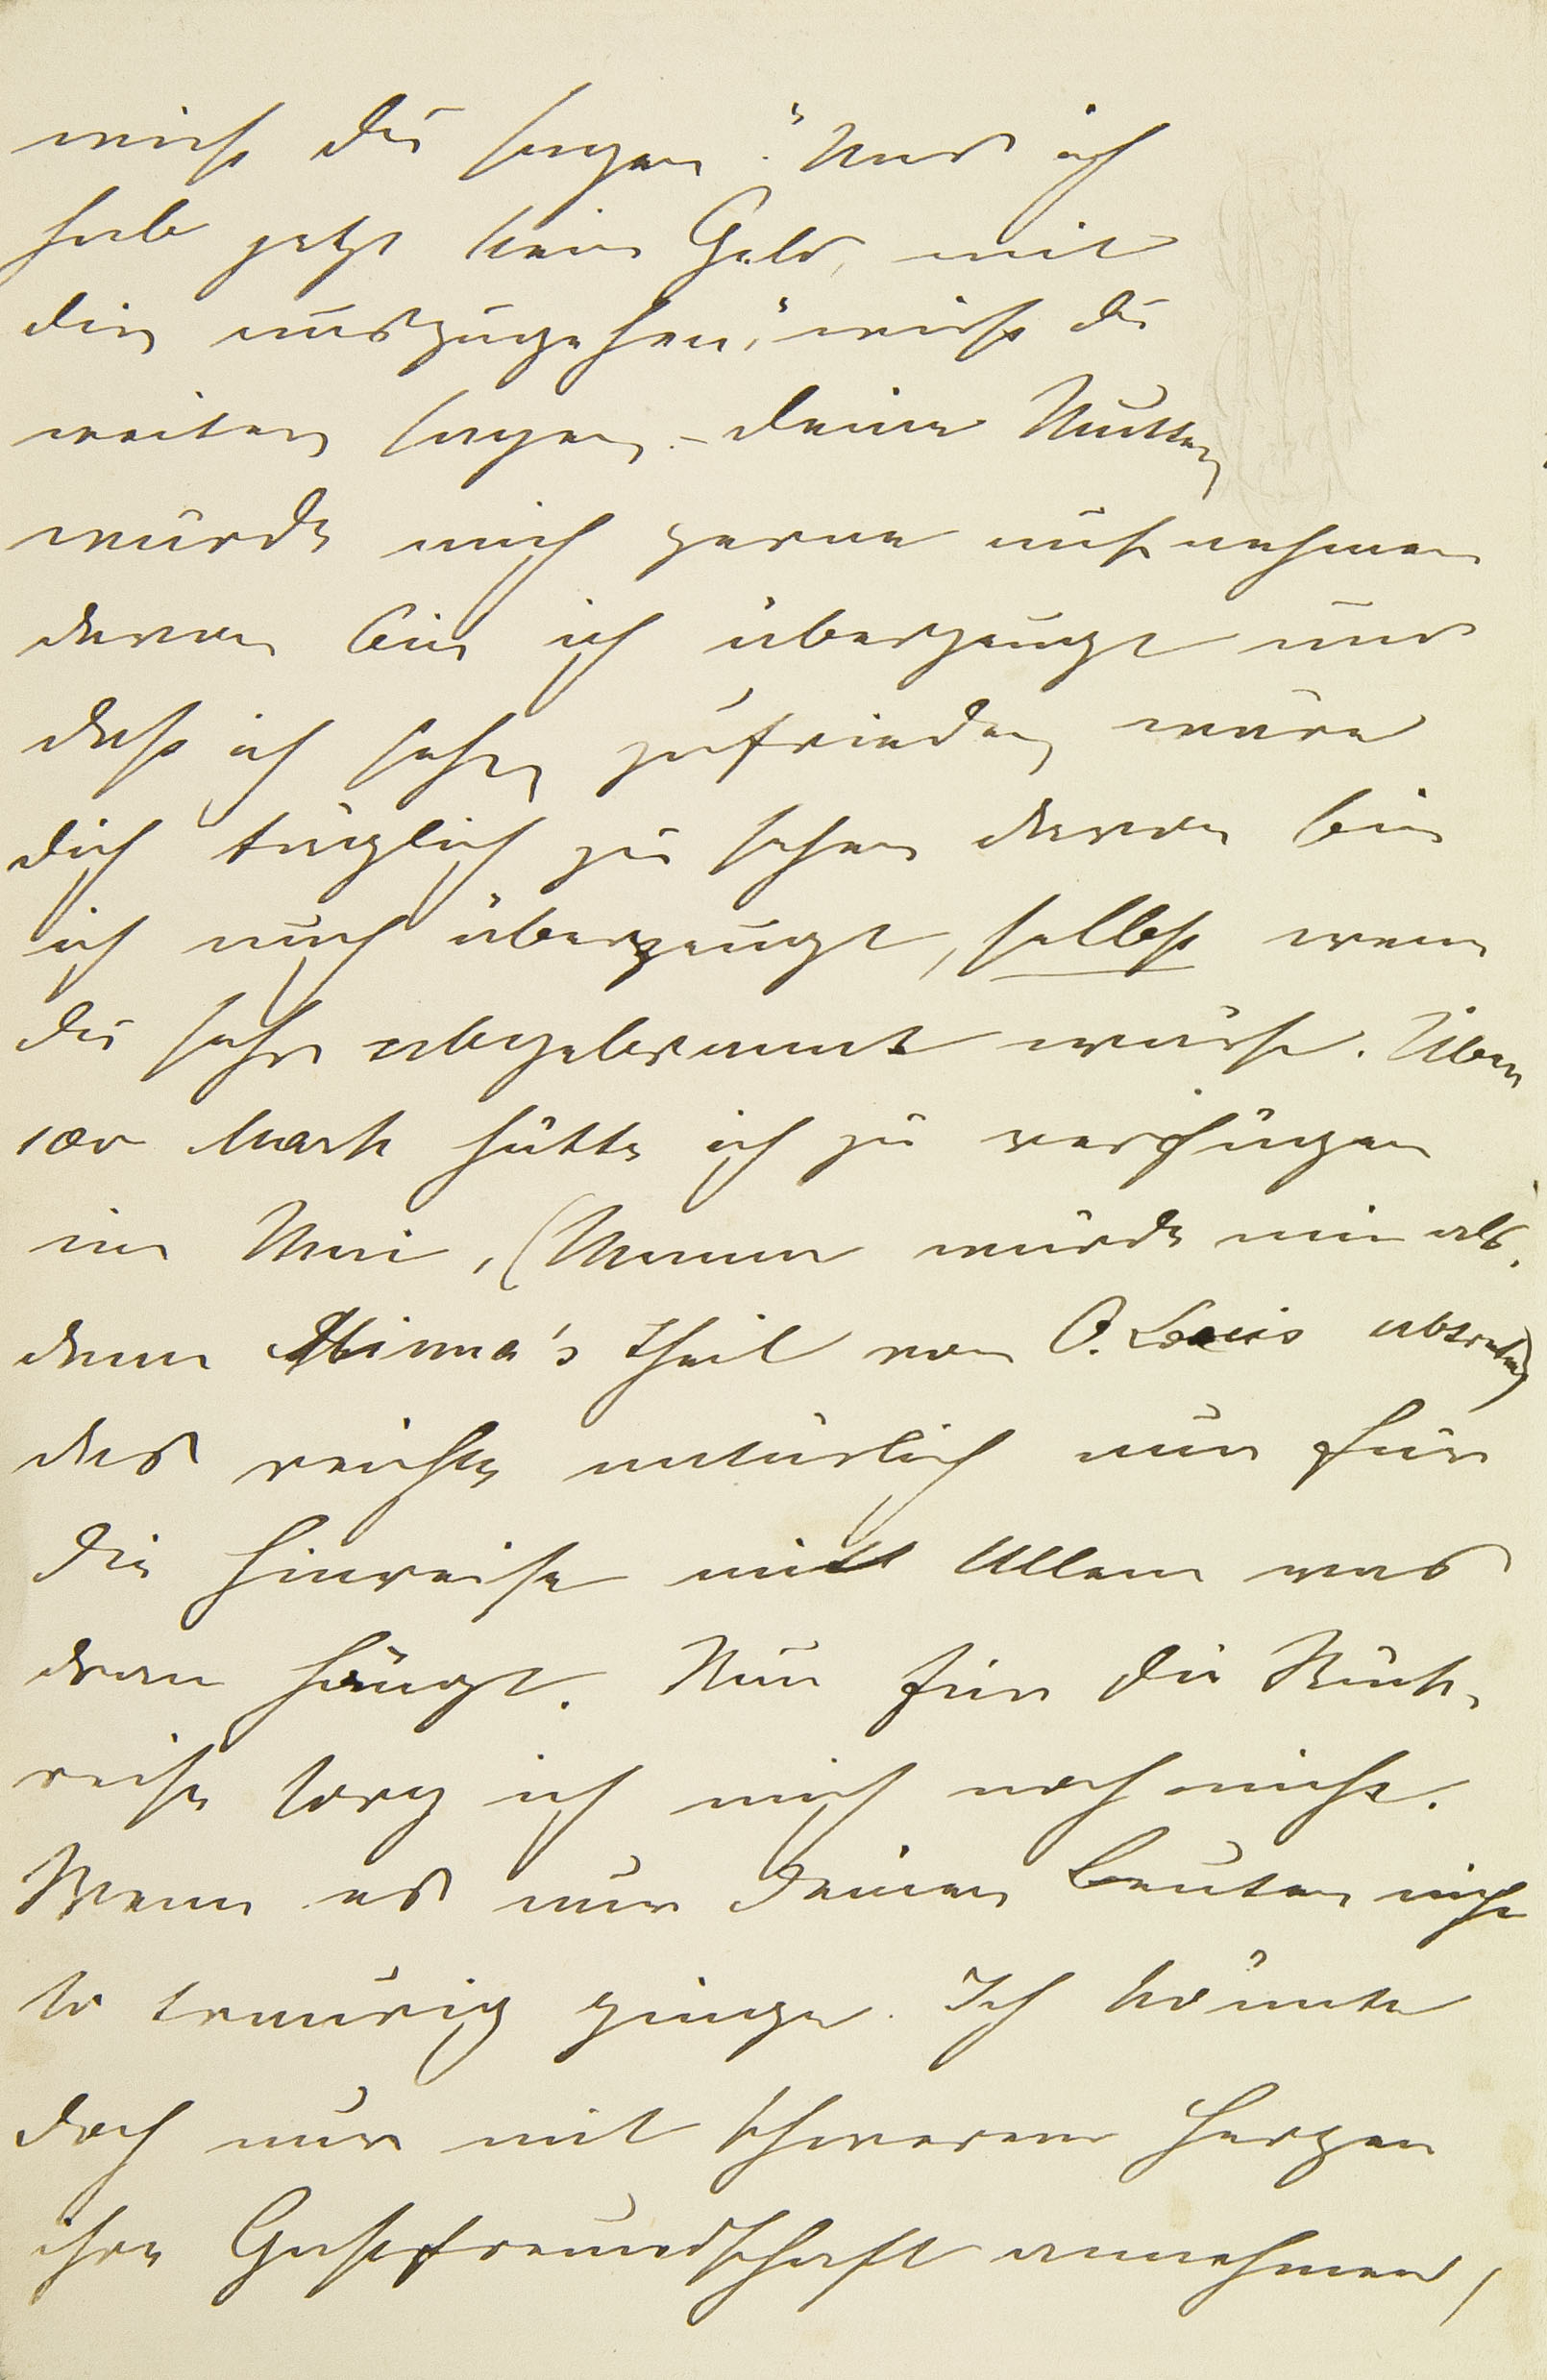 wirst du sagen. "Und ich
hab jetzt kein Geld, mit
dir auszugehen," wirst du
weiter sagen. – Deine Mutter
würde mich gerne aufnehmen
davon bin ich überzeugt und
daß ich sehr zufrieden wäre
dich täglich zu sehen davon bin
ich auch überzeugt, selbst wenn
du sehr abgebrannt wärst. Über
100 Mark hätte ich zu verfügen
im Mai, (Mama würde mir als,
dann Minna's Theil von O. Louis abtreten)
das reichte natürlich nur für
die Hinreise mit Allem was
dran hängt. Nun für die Rück,
reise sorg ich mich noch nicht.
Wenn es nur deinen Leuten nicht
so traurig ginge. Ich könnte
doch nur mit schwerem Herzen
ihre Gastfreundschaft annehmen,